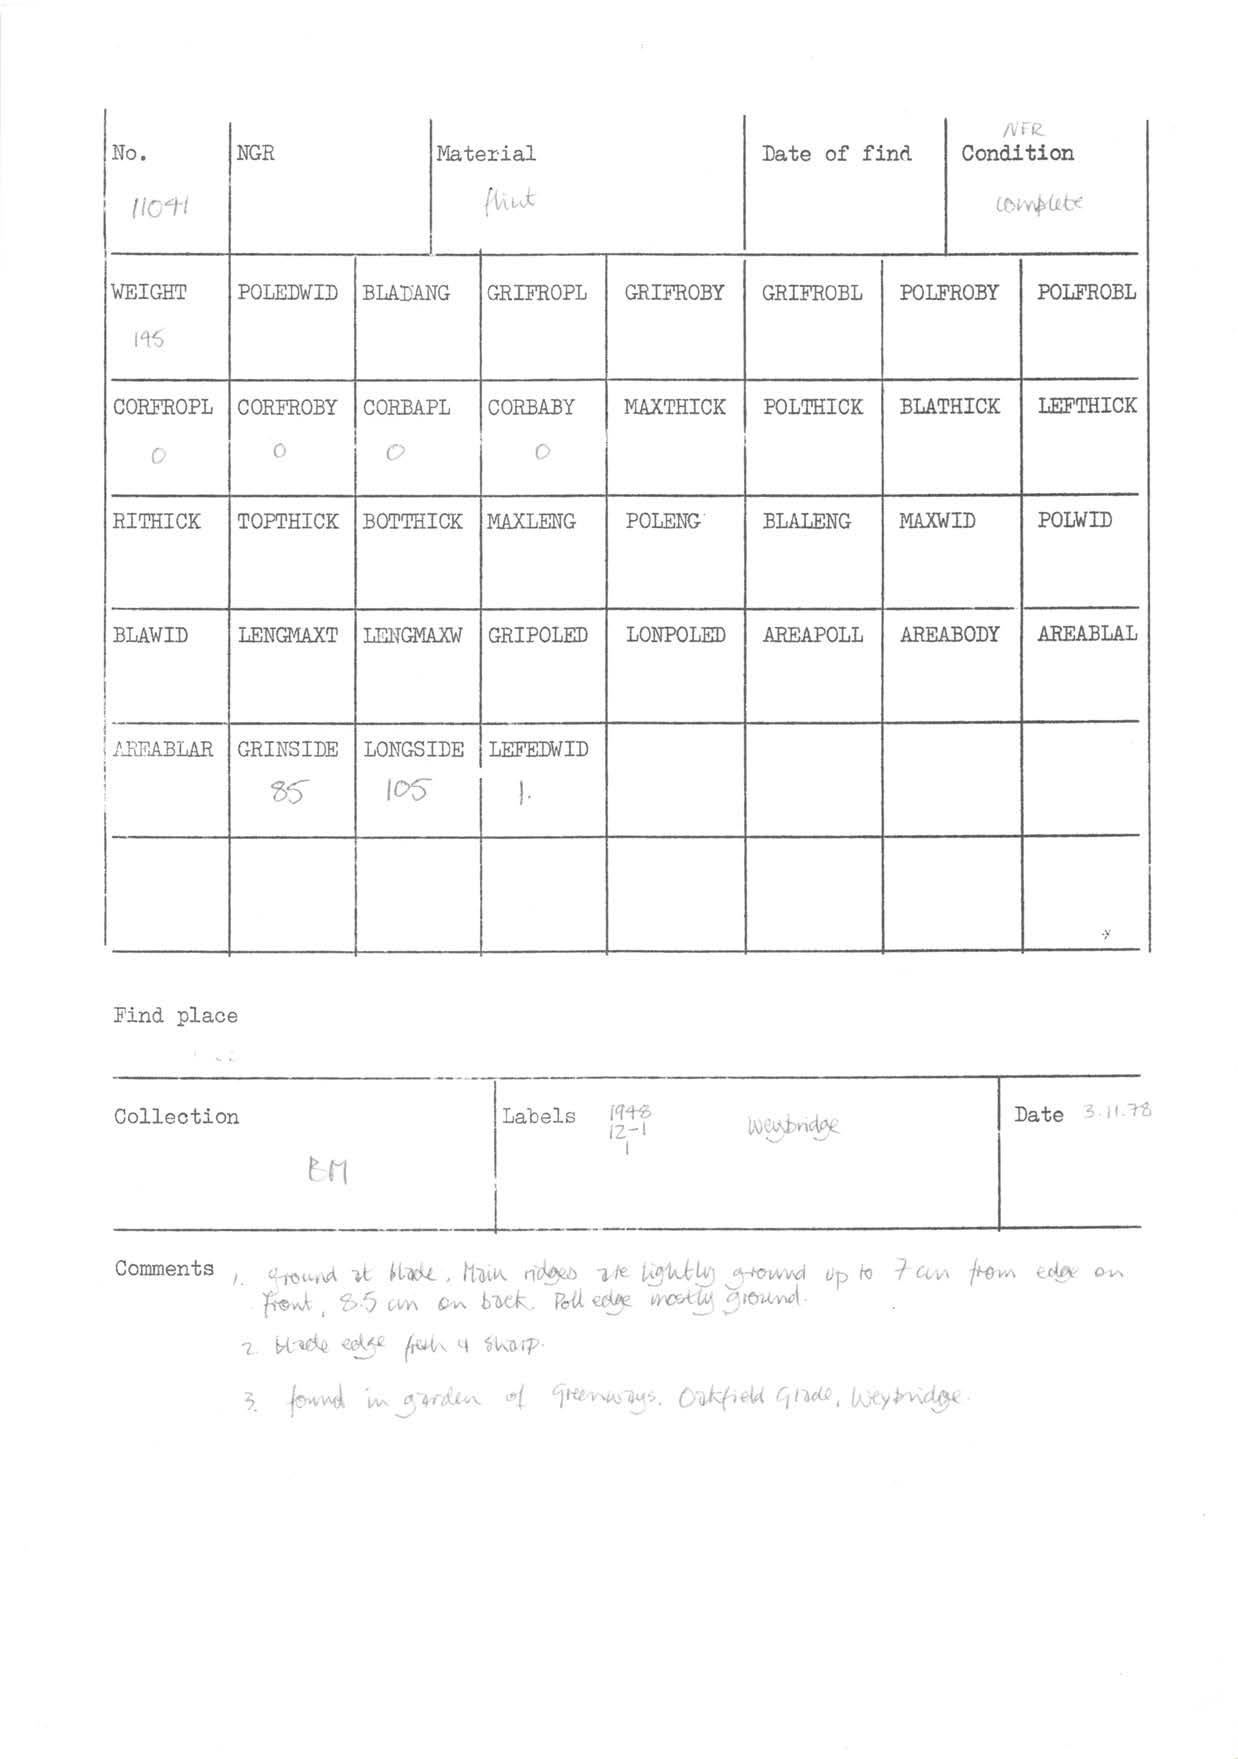 NFR
No. NGR Material Date of find Condition
11041 flint complete
WEIGHT POLEDWID BLADANG GRIFROPL GRIFROBY GRIFROBL POLFROBY POLFROBL
195
CORFROPL CORFROBY CORBAPL CORBABY MAXTHICK POLTHICK BLATHICK LEFTHICK
0 0 0 0
RITHICK TOPTHICK BOTTHICK MAXLENG POLENG BLALENG MAXWID POLWID
BLAWID LENGMAXT LENGMAXW GRIPOLED LONPOLED AREAPOLL AREABODY AREABLAL
AREABLAR GRINSIDE LONGSIDE LEFEDWID
85 105 1.
Find place
Collection Labels 1948 Weybridge Date 3.11.78
12-1
1
BM
Comments 1. ground at blade. Main ridges are lightly ground up to 7 cm from edge on
front, 8.5 cm on back. Poll edge mostly ground.
2. blade edge fresh & sharp.
3. found in garden of Greenways, Oakfield Glade, Weybridge.